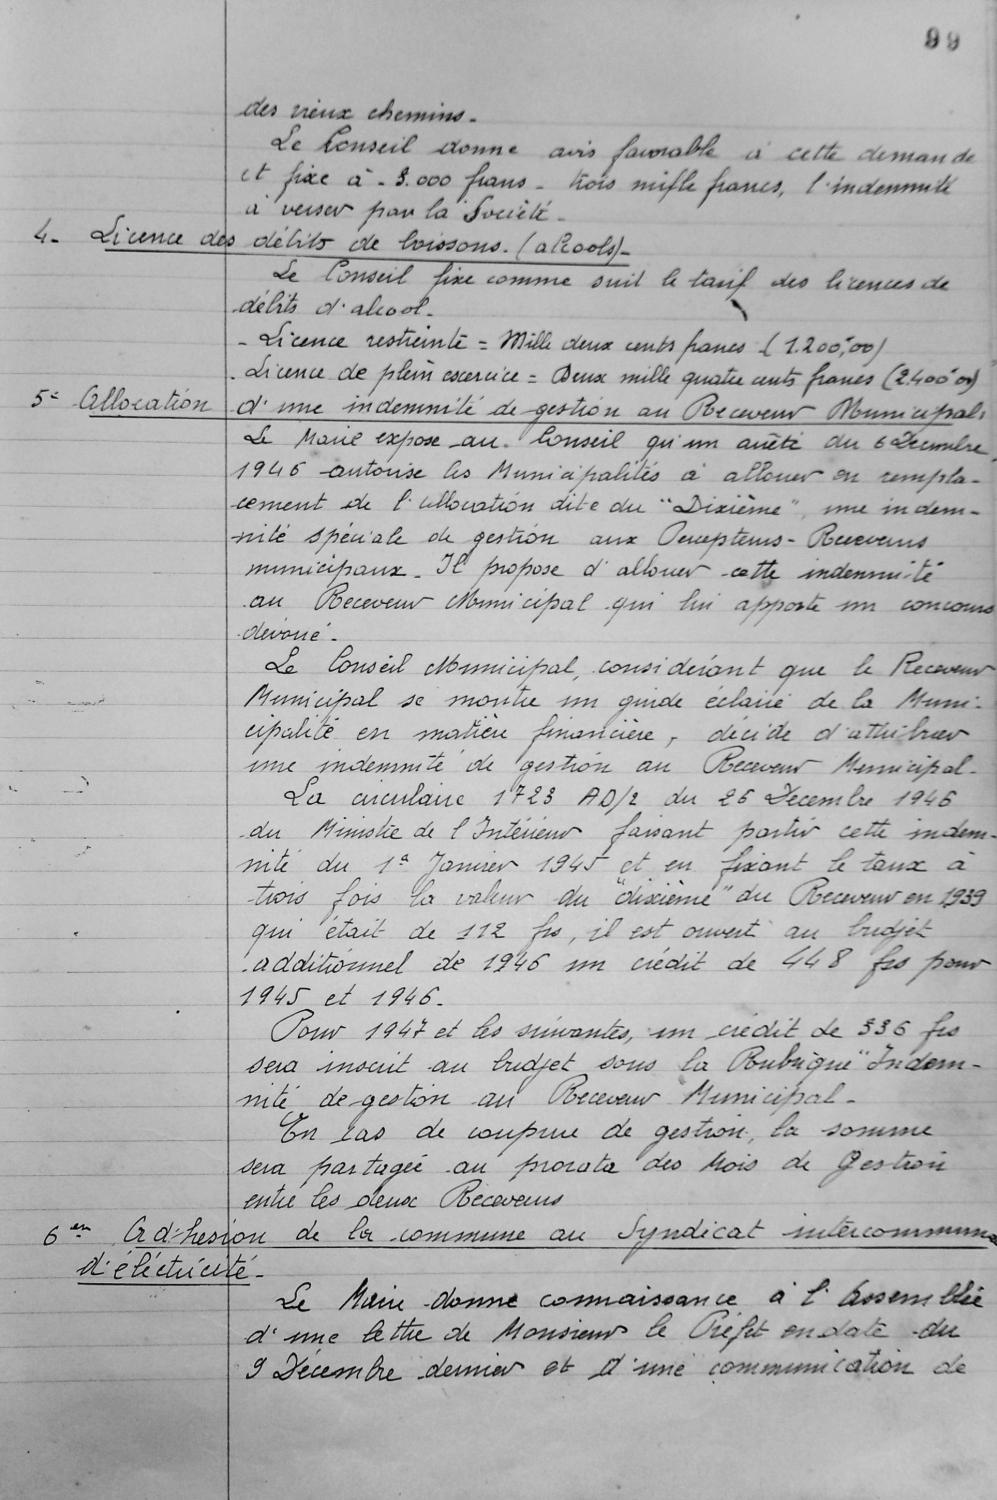 99
des vieux chemins.
Le Conseil donne avis favorable à cette demande
et fixe à - 3.000 frans - trois mille francs, l'indemnité
à verser par la Société.
4- Licence des débits de boissons. (alcools)-
Le Conseil fixe comme suit le tarif des licences de
débits d'alcool.
- Licence restreinte = Mille deux cents francs (1.200,00)
- Licence de plein exercice = Deux mille quatre cents francs (2.400,00)
5e Allocation d'une indemnité de gestion au Receveur Municipal.
Le Maire expose au Conseil qu'un arrêté du 6 Décembre
1946 autorise les Municipalités à allouer en rempla-
cement de l'allocation dite du "Dixième", une indem-
nité spéciale de gestion aux Percepteurs - Receveurs
municipaux. Il propose d'allouer cette indemnité
au Receveur Municipal qui lui apporte un concours
dévoué.
Le Conseil Municipal, considérant que le Receveur
Municipal se montre un guide éclairé de la Muni-
cipalité en matière financière, décide d'attribuer
une indemnité de gestion au Receveur Municipal-
La circulaire 1723 AD/2 du 26 Décembre 1946
du Ministre de l'Intérieur faisant partir cette indem-
nité du 1er Janvier 1945 et en fixant le taux à
trois fois la valeur du "dixième" du Receveur en 1939
qui était de 112 frs, il est ouvert au budjet
additionnel de 1946 un crédit de 448 frs pour
1945 et 1946.
Pour 1947 et les suivantes, un crédit de 336 frs
sera inscrit au budjet sous la Rubrique "Indem-
nité de gestion au Receveur Municipal-
En cas de coupure de gestion, la somme
sera partagée au prorata des Mois de Gestion
entre les deux Receveurs
6en Adhésion de la commune au Syndicat intercommuna
d'éléctricité-
Le Maire donne connaissance à l'Assemblée
d'une lettre de Monsieur le Préfet en date du
9 Décembre dernier et d'une communication de